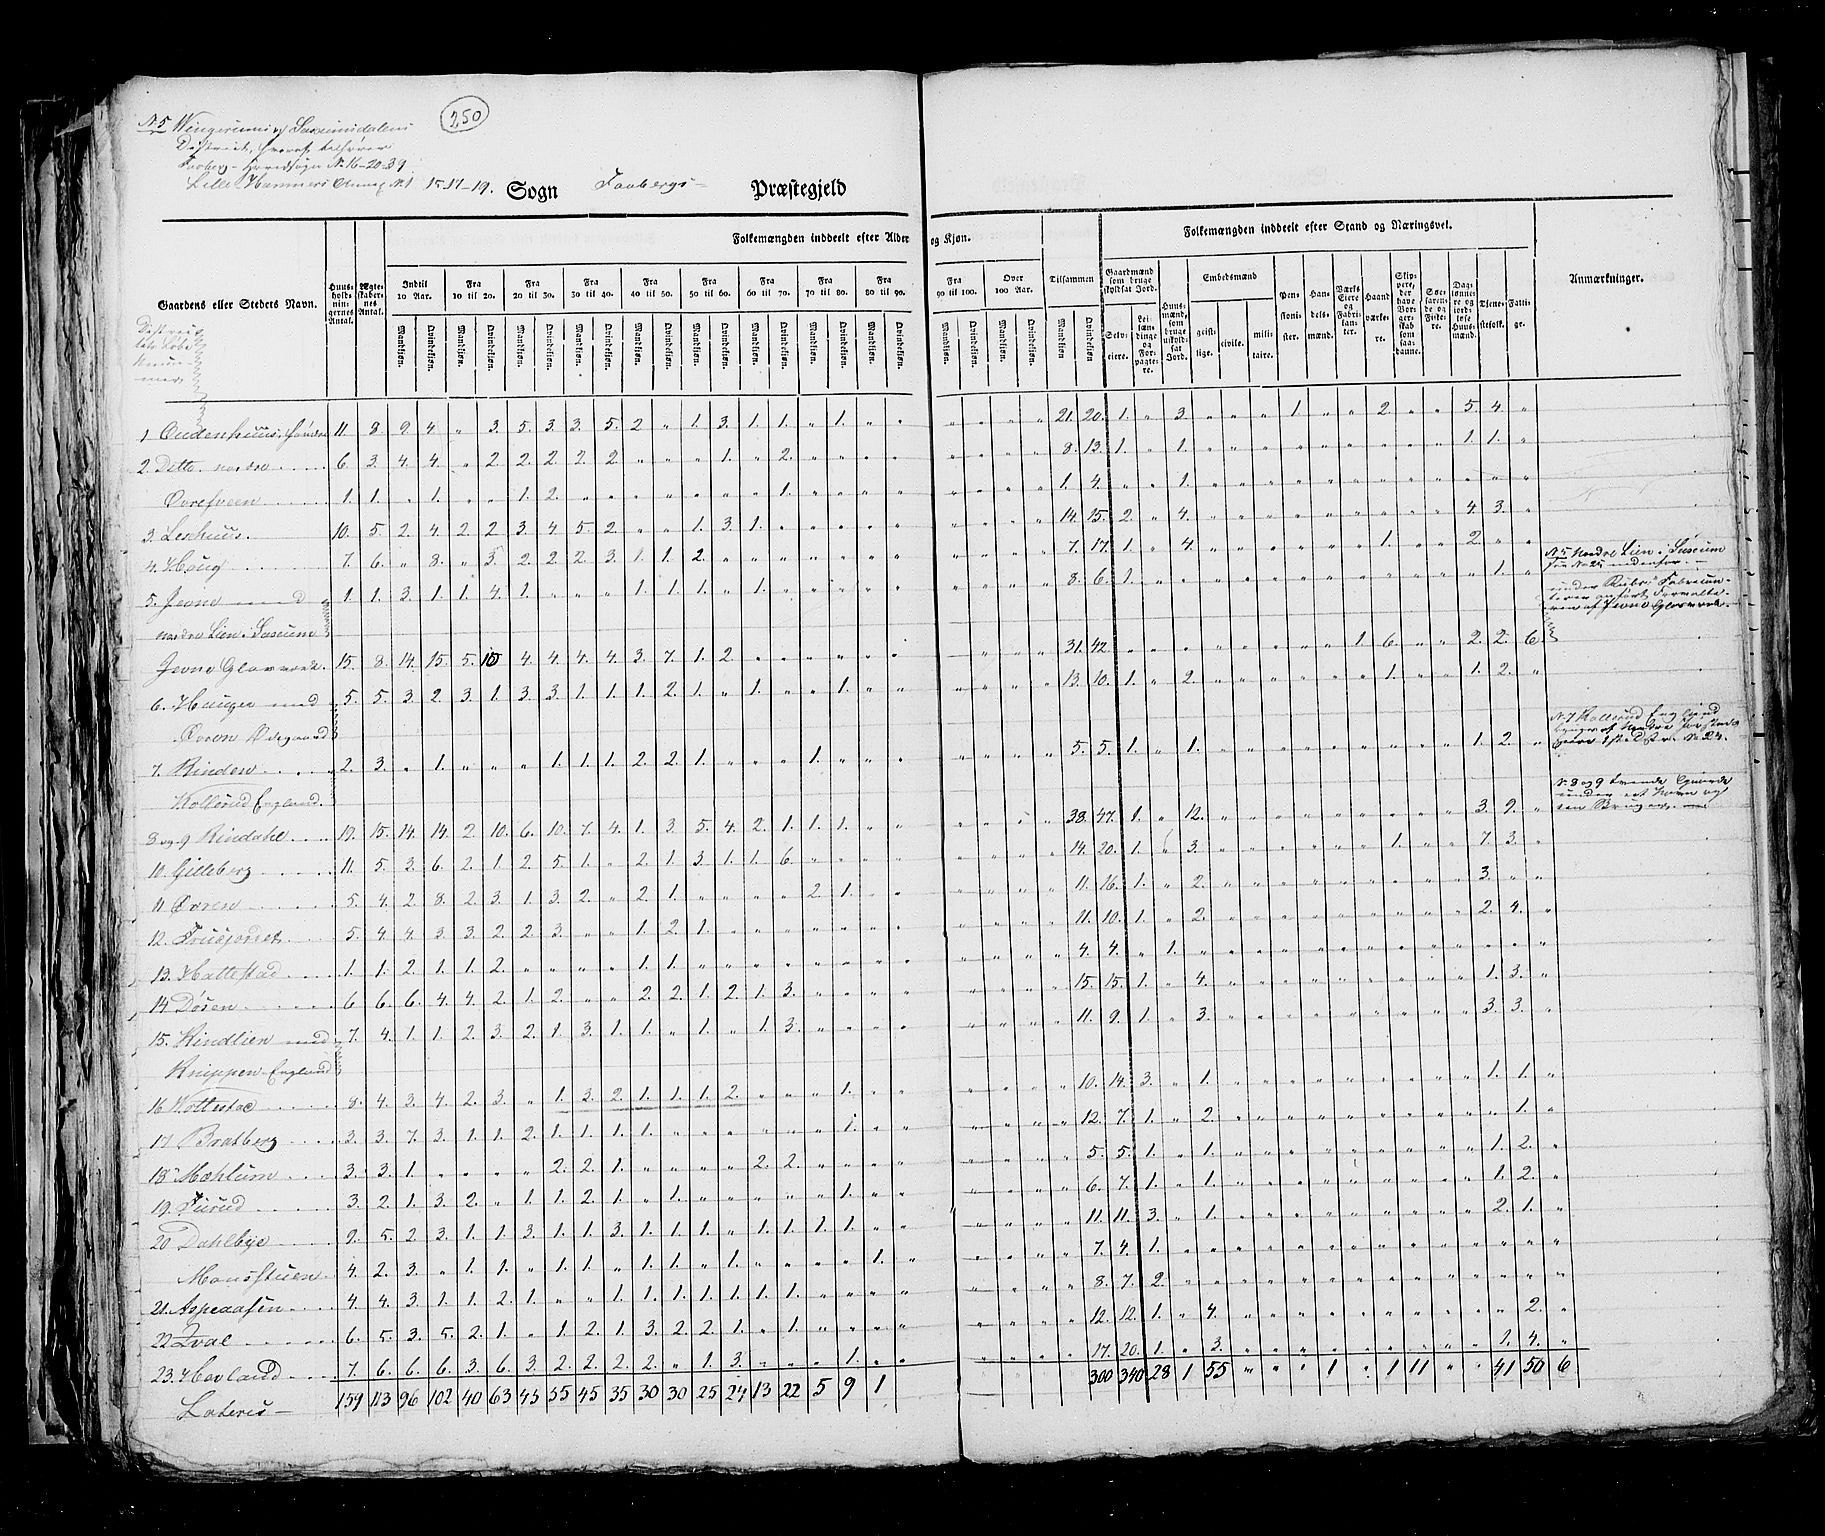 № 5 Wingerums og Saxumsdalens
250
District, hvoraf tilhører
Faaberg - Hovedsogn № 16-20-39
Lille Hammers Annex № 1 15. 17-19. Sogn Faabergs- Præstegjeld
Folkemængden inddeelt efter Alder og Kjøn.
Folkemængden inddeelt efter Stand og Næringsvei.
Gaardens eller Stedets Navn.
Huusholdningernes Antal.
Ægteskabernes Antal.
Indtil 10 Aar.
Fra 10 til 20.
Fra 20 til 30.
Fra 30 til 40.
Fra 40 til 50.
Fra 50 til 60.
Fra 60 til 70.
Fra 70 til 80.
Fra 80 til 90.
Fra 90 til 100.
Over 100 Aar.
Tilsammen
Mandkiøn. Qvindekiøn.
Gaardmænd som bruge skyldsat Jord.
Selveiere.
Leilændinge og Forpagtere.
Huusmænd, som bruge uskyldsat Jord.
Embedsmænd
geistlige.
civile.
militaire.
Pensionister.
Handelsmænd.
Værks Eiere og Fabrikanter.
Haandværkere.
Skippere, der have Borgerskab som saadanne.
Søefarende og Fiskere.
Daglønnere og jordløse Huusmænd.
Tienestefolk.
Fattige.
Anmærkninger.
1 Oudenhuus, søndre 11. 8. 9. 4. „ 3. 5. 3. 3. 5. 2 „ 1. 3. 1. 1. „ 1. „ „ 21. 20. 1. „ 3. „ „ „ 1 „ „ 2. „ „ 5. 4. „
2. Ditto nordre 6. 3. 4. 4. „ 2. 2. 2. 2. 2 „ „ „ 1. „ 2. 8. 13. 1. „ 1. 1. 1. „
Ovrefveen 1. 1. „ 1. „ „ 1. 2. „ 1. 1. 4. „ „ 1.
3. Leshuus. 10. 5. 2. 4. 2. 2 3. 4. 5. 2 „ „ 1. 3. 1. 14. 15. 2. „ 4. 4. 3. „
4. Houg 7. 6. „ 8. „ 3. 2. 2. 2. 3. 1. 1. 2. 7. 17. 1. „ 4. 1. 2. „
5. Jevne med 1. 1. 3. 1. 1. 4. 1. „ „ „ 1. 1. 1. „ 1. 8. 6. 1. „ 1. „
nordre Lien i Saxum
Jevne Glasværk. 15. 8. 14. 15. 5. 10 4. 4. 4. 4. 3. 7. 1. 2 31. 42 1. 6. 2. 2. 6
6. Hauger med 5. 5. 3. 2. 3. 1. 3. 3. 1. 1. 1. 2. 1. „ 1. „ „ 1. 13. 10. 1. „ 2. 1. 1. 2. „
Øveren Ødegaard
7. Rinden 2. 3. „ 1. „ „ „ 1. 1. 1. 2. 2. 1. „ „ „ 1. 5. 5. 1. „ 1. 1. 2. „
Kollerud England.
8 og 9 Rindahl 17. 15. 14. 14. 2. 10. 6. 10. 7. 4. 1. 3. 5. 4. 2. 1. 1. 1. 38. 47. 1. „ 12. 3. 9. „
10. Gilleberg 11. 5. 3. 6. 2. 1. 2. 5. 1. „ 2. 1. 3. 1. 1. 6. 14. 20. 1. „ 3. 1. 7. 3. „
11 Øvren 5. 4. 2. 8. 2. 3. 1. 3. 2. „ 2. 1. „ „ „ „ 2. 1. 11. 16. 1. „ 2. 3. „ „
12. 5. 4. 4. 3. 3. 2. 2. 3. „ „ 1. 2. 1. 11. 10. 1. „ 2. 2. 4. „
13. Hattestad. 1. 1. 2. 1. 1. 2. „ „ „ „ 1. 1. 4. 4. „ 1.
14 Døsen 6. 6. 6. 4. 4. 2. 1. 2. „ „ 2. 2. 1. 2. 1. 3. 15. 15. 1. „ 4. 1. 3. „
15. Rindlien med 7. 4. 1. 1. 2. 3. 2. 1. 3. 1. 1. „ 1. „ 1. 3. 11. 9. 1. „ 3. 3. 3. „
Knippen-Englund
16 Kollestad 8. 4. 3. 4. 2. 3. „ 1. 3. 2. 1. 1. 1. 2. „ „ „ 1. 10. 14. 3. „ 1. 1. 1. „
17 Bratberg 3. 3. 7. 3. 1. 1. 2. 1. 1. 1. 1. 1. 12. 7. 1. „ 2. 1. „
18 Mæhlum 3. 3. 1. „ „ „ „ 2. 2. 1. „ „ „ „ 2. 2. 5. 5. 1. „ 1. 1. 2. „
19. Furud 3. 2. 1. 3. 2. „ 1. 1. 2. 1. „ 1. 1. 6. 7. 1. „ 1. 1. 2. „
20 Dahlbye 9. 5. 2. 3. 1. 1. 3. 1. 1. 3. 1. 1. 1. „ 1. 1. 1. 1. 11. 11. 3. „ 1. 2. 1. „
Monsstuen 4. 2. 3. „ 1. 1. „ 1. „ 1. 1. „ 1. 1. 7. 4. 1.
21. Aspeaasen 4. 4. 3. 1. 1. 2. 1. „ „ 1. 1. 1. 1. 1. 1. 1. 8. 7. 2.
22 6. 5. 3. 5. 2. 1. „ 1. 2. 1. 3. 2. 2. 1. „ 1. 12. 12. 1. „ 4. 2. „
23. Hovland 7. 6. 6. 6. 3. 6. 3. 2. 2. 2. 2. „ 1. 3. „ „ „ 1. 17. 20. 1. „ 3. 1. 4. „
Lateris - 159 113 96 102 40 63 45 55 45 35 30 30 25 24 13 22 5 9 1 300 340 28 1 55 „ „ „ 1 „ 1 11 „ „ 41 50 6
№ 5 Nordre Lien i Saxum
under Rubr. Fabricanterer anført Forvalteren af Jevne Glasværk.
№ 7 Kollerud England
№ 8 og 9 tvende Gaarde
under eet Navn og
een Bruger.